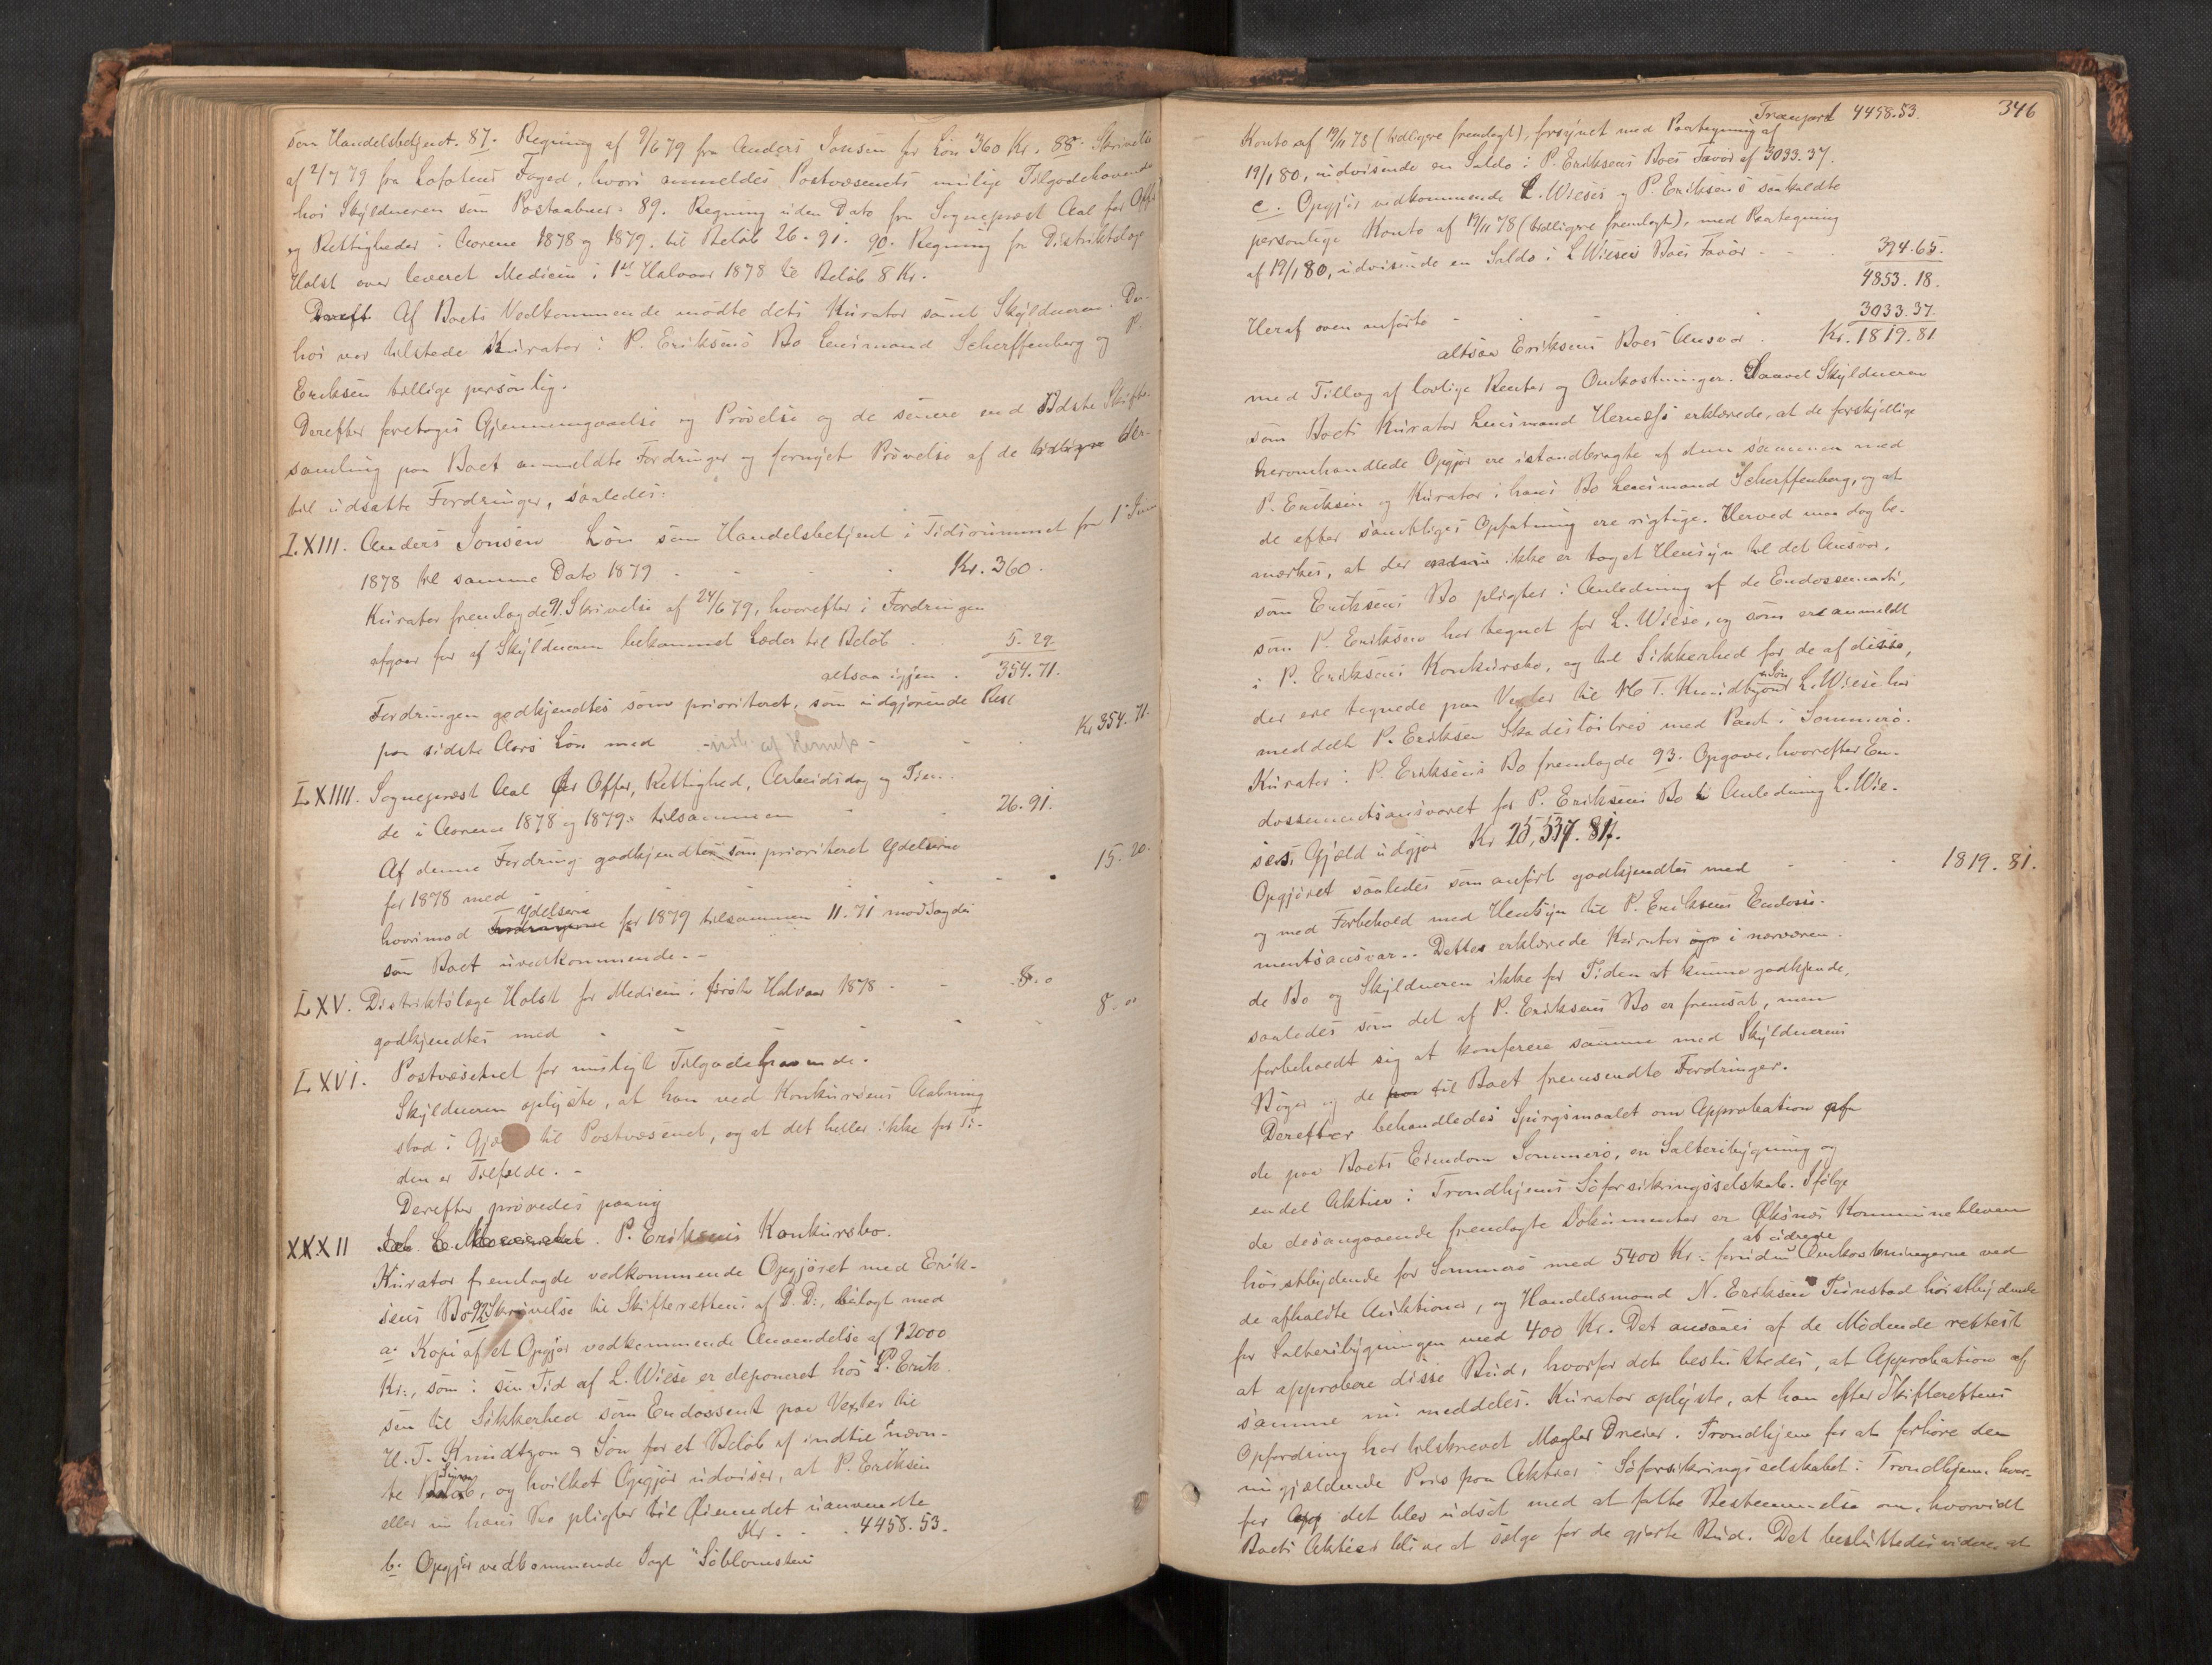 som Handelsbetjent. 87. Regning af 9/6 79 fra Anders Jonsen for Løn 360 Kr. 88. Skrivelse
af 2/7 79 fra Lofotens Foged, hvori anmeldes Postvæsenets mulige Tilgodehavende
hos Skyldneren som Postaabner. 89. Regning uden Dato fra Sogneprest Aal for Offer
og Rettigheder i Aarene 1878 og 1879. til Beløb 26-91. 90. Regning fra Distriktslæge
Holst over leveret Medicin i 1ste Halvaar 1878 til Beløb 8 Kr.
Af Boets Vedkommende mødte dets Kurator samt Skyldneren. Der-
hos var tilstede Kurator i P. Eriksens Bo Lensmand Scherffenberg og P.
Eriksen tillige personlig.
Derefter foretoges Gjennemgaaelse og Prøvelse og de senere end sidste Skifte-
samling paa Boet anmeldte Fordringer og fornyet Prøvelse af de tidligere her-
til udsatte Fordringer, saaledes:
LXIII. Anders Jonsen Løn som Handelsbetjent i Tidsrummet fra 1 Juni
1878 til samme Dato 1879 - - - Kr. 360.
Kurator fremlagde 91. Skrivelse af 24/6 79, hvorefter i Fordringen
afgaar for af Skyldneren bekommet Læder til Beløb 5. 29
altsaa igjen . 354. 71.
Fordringen godkjendtes som prioriteret, som udgjørende Rest
paa sidste Aars Løn med - - Kr 354. 71.
LXIIII. Sogneprest Aal for Offer, Rettighed, Arbeidsdag og Tien-
de i Aarene 1878 og 1879: tilsammen - - 26. 91.
Af denne Fordring godkjendtes som prioriteret Ydelserne
for 1878 med - - - 15. 20.
hvorimod Fordringerne Ydelserne for 1879 tilsammen 11. 71 modsagdes
som Boet uvedkommende. -
LXV. Distriktslæge Holst for Medicin i første Halvaar 1878 - - 8. 0
godkjendtes med - - - 8. 00
LXVI. Postvæsenet for muligt Tilgodehavende.
Skyldneren oplyste, at han ved Konkursens Aabning
stod i til Postvæsenet, og at det heller ikke for Ti-
den er Tilfælde. -
Derefter prøvedes paany
XXXII P. Eriksens Konkursbo.
Kurator fremlagde vedkommende Opgjøret med Erik-
sens Bo 92 Skrivelse til Skifteretten af D. D:, bilagt med
a. Kopi af et Opgjør vedkommende Anvendelse af 12000
Kr:, som i sin Tid af L. Wiese er deponeret hos P. Erik-
sen til Sikkerhed som Endossent paa Vexler til
H. T. Knudtzon & Søn for et Beløb af indtil nævn-
te Beløb, og hvilket Opgjør udviser, at P. Eriksen
eller nu hans Bo pligter til Øiemedet uanvendte
Kr. - - 4458. 53.
b. Opgjør vedkommende Jagt "Søblomsten
346
Transport 4458. 53.
Konto af 19/11 78 (tidligere fremlagt), forsynet med Paategning af
19/1 80, udvisende en Saldo i P. Eriksens Boes Favør af 3033. 37.
c. Opgjør vedkommende L. Wieses og P. Eriksens saakaldte
personlige Konto af 19/11 78 (tidligere fremlagt), med Paategning
af 19/1 80, udvisende en Saldo i L Wieses Boes Favør - - 394. 65.
4853. 18.
Heraf oven anførte - - - 3033. 37.
altsaa Eriksens Boes Ansvar . Kr. 1819. 81
med Tillæg af lovlige Renter og Omkostninger. Saavel Skyldneren
som Boets Kurator Lensmand Hernæss erklærede, at de forskjellige
heromhandlede Opgjør ere istandbragte af dem sammen med
P. Eriksen og Kurator i hans Bo Lensmand Scherffenberg, og at
de efter samtliges Opfatning ere rigtige. Herved maa dog be-
mærkes, at der endnu ikke er taget Hensyn til det Ansvar,
som Eriksens Bo pligter i Anledning af de Endossementer,
som P. Eriksen har tegnet for L. Wiese, og som ere anmeldt
i P. Eriksens Konkursbo, og til Sikkerhed for de af disse,
der ere tegnede paa Vexler til H. T. Knudtzon & Søn L. Wiese har
meddelt P. Eriksen Skadesløsbrev med Pant i Sommerø.
Kurator i P. Eriksens Bo fremlagde 93. Opgave, hvorefter En-
dossementsansvaret for P. Eriksens Bo i Anledning L. Wie-
ses Gjæld udgjør Kr 25,537. 81.
Opgjøret saaledes som anført godkjendtes med - - - 1819. 81.
og med Forbehold med Hensyn til P. Eriksens Endosse-
mentsansvar. Dette erklærede Kurator i nærværen-
de Bo og Skyldneren ikke for Tiden at kunne godkjende,
saaledes som det af P. Eriksens Bo er fremsat, men
forbeholdt sig at konferere samme med Skyldnerens
Bøger og de til Boet fremsendte Fordringer.
Derefter behandledes Spørgsmaalet om Approbation
de paa Boets Eiendom Sommerø, en Salteribygning og
endel Aktier i Trondhjems Søforsikringsselskab. Ifølge
de desangaaende fremlagte Dokumenter er Øksnes Kommune bleven
høistbydende for Sommerø med 5400 Kr. foruden at udrede Omkostningerne ved
de afholdte Auktioner, og Handelsmand N. Eriksen Tinnstad høistbydende
for Salteribygningen med 400 Kr. Det ansaaes af de Mødende rettest
at approbere disse Bud, hvorfor det besluttedes, at Approbation af
samme nu meddeles. Kurator oplyste, at han efter Skifterettens
Opfordring har tilskrevet Mægler Dreier i Trondhjem for at forhøre den
nugjældende Pris paa Aktier i Søforsikringsselskabet i Trondhjem, hvor-
for det blev udsat med at fatte Bestemmelse om, hvorvidt
Boets Aktier blive at sælge for de gjorte Bud. Det besluttedes videre, at